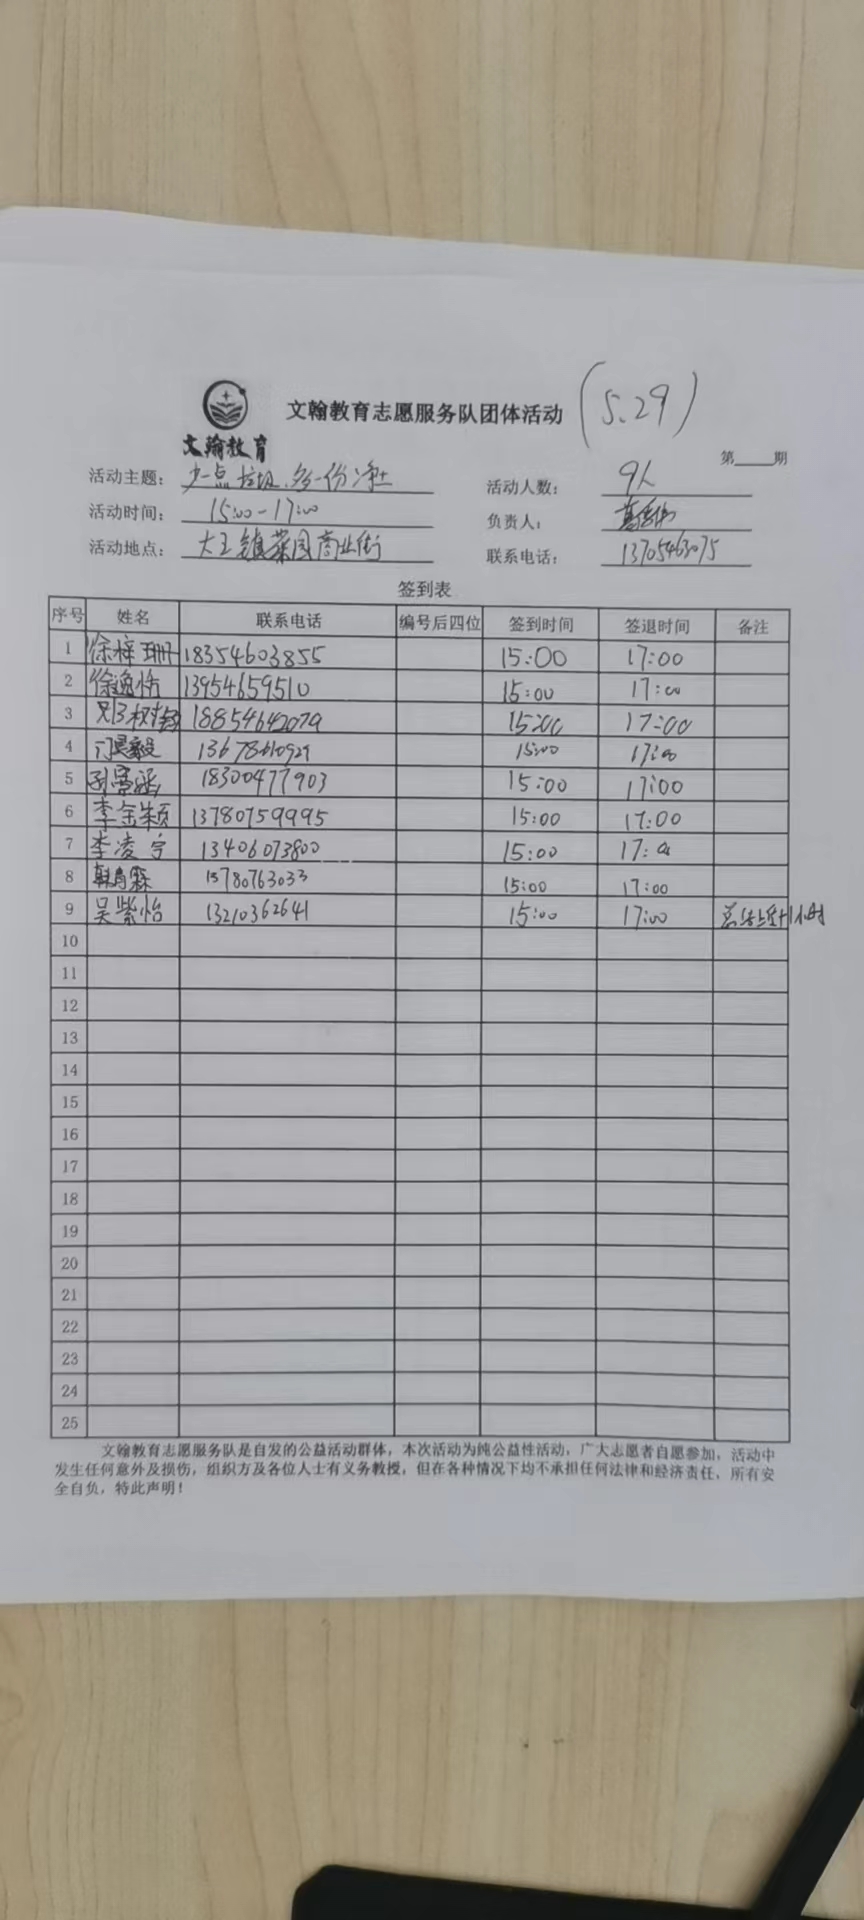 文翰教育志愿服务队团体活动 (5.29)
文翰教育
第____期
活动主题: 少一点垃圾,多一份净土 活动人数: 9人
活动时间: 15:00-17:00 负责人:
活动地点: 大王镇菜园商业街 联系电话: 13705463075
签到表
序号 姓名 联系电话 编号后四位 签到时间 签退时间 备注
1 徐梓珊 18354603855 15:00 17:00
2 徐逸 13954659510 15:00 17:00
3 18854642079 15:00 17:00
4 15:00 17:00
5 孙 18300477903 15:00 17:00
6 李金颖 13780759995 15:00 17:00
7 李凌宇 13406073800 15:00 17:00
8 韩 13780763033 15:00 17:00
9 吴紫怡 13210362641 15:00 17:00 小时
10
11
12
13
14
15
16
17
18
19
20
21
22
23
24
25
文翰教育志愿服务队是自发的公益活动群体,本次活动为纯公益性活动,广大志愿者自愿参加,活动中
发生任何意外及损伤,组织方及各位人士有义务教授,但在各种情况下均不承担任何法律和经济责任,所有安
全自负,特此声明!